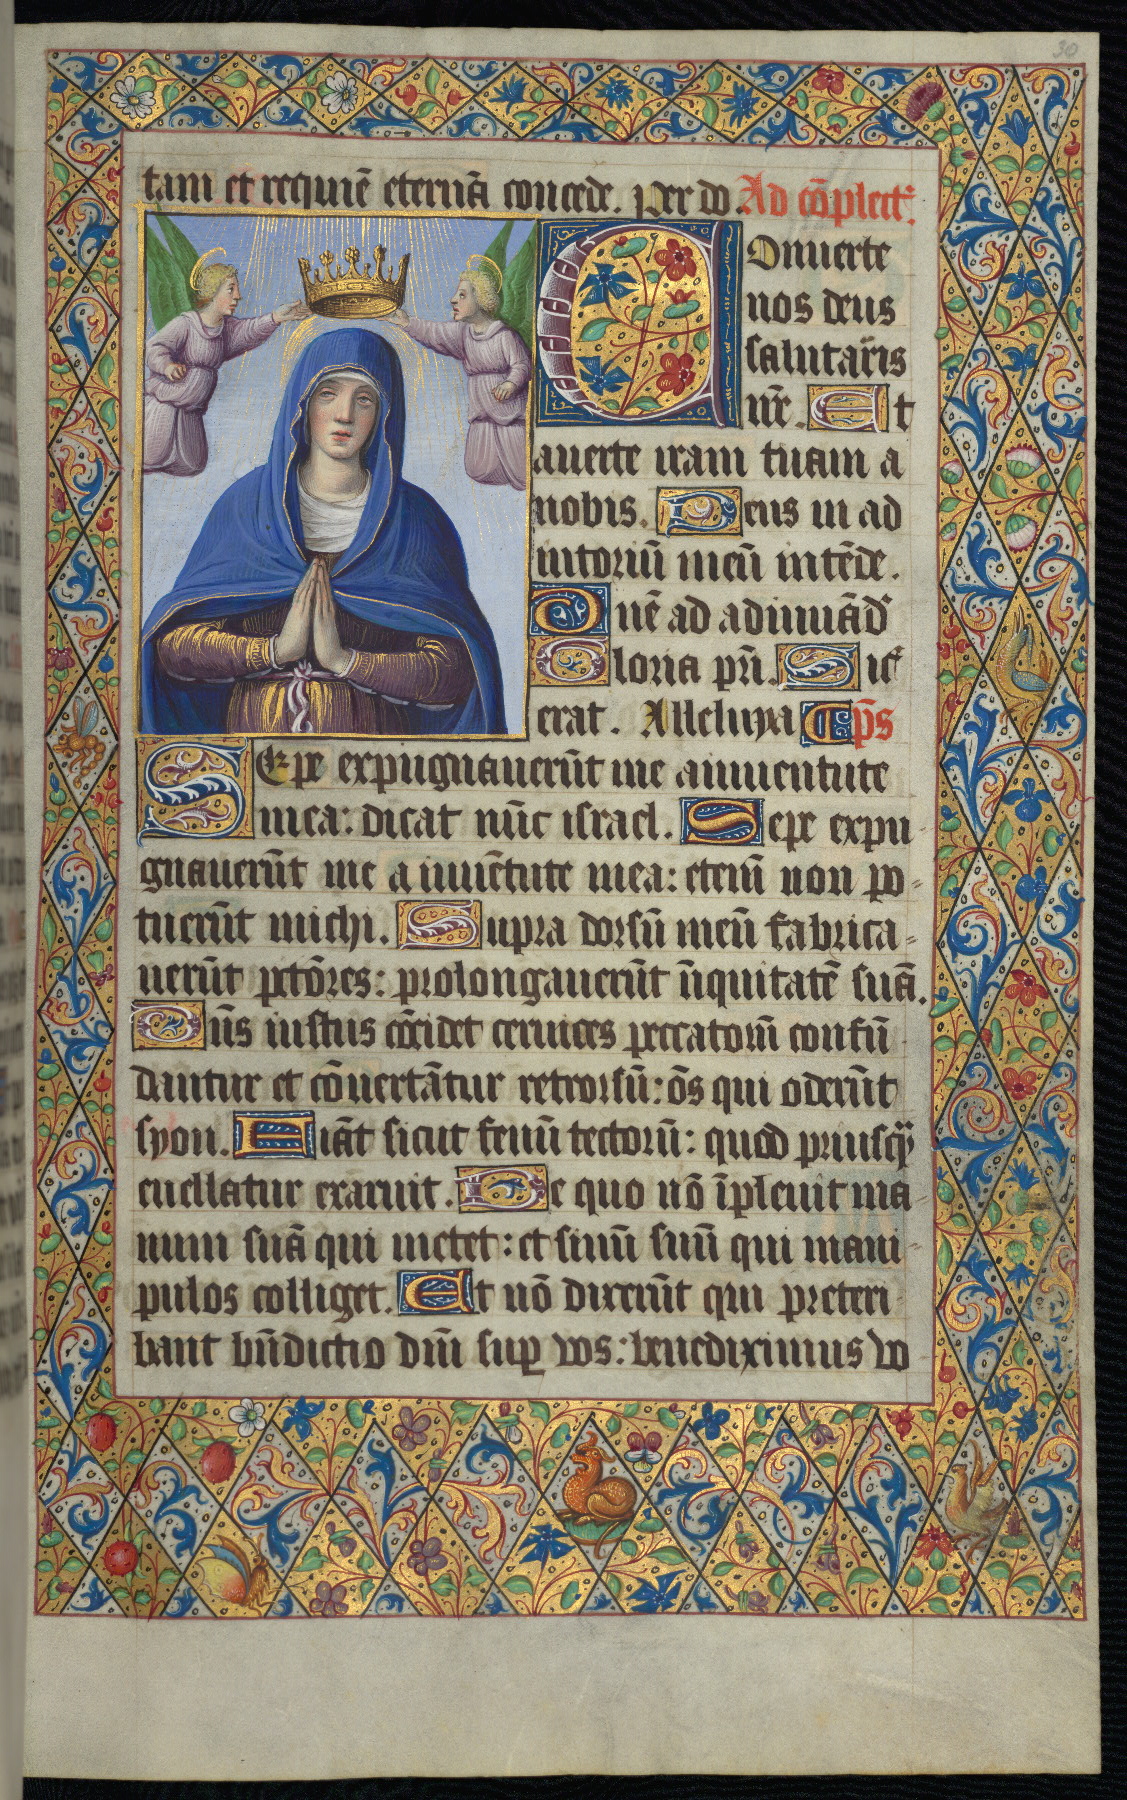 30
tam et requiē eternā concede. per do. Ad cōplect.
Conuerte
nos deus
salutaris
nr̄. Et
auerte iram tuam a
nobis. Deus in ad
iutoriū meū intēde.
Dn̄e ad adiuuād
Gloria pr̄i. Sic
erat. Alleluya p̄s
Sepe expugnauerūt me a iuuentute
mea: dicat nūc israel. Sepe expu
gnauerūt me a iuuētute mea: etenī non po-
tuerūt michi. Supra dorsū meū fabrica-
uerūt pctōres: prolongauerūt īiquitatē suā.
Dn̄s iustus cōcidet ceruices peccatorū confū
dantur et cōuertātur retrorsū: ōs qui oderūt
syon. Fiāt sicut fenū tectorū: quod priusq̄
euellatur exaruit. De quo nō īpleuit ma
num suā qui metet: et sinū suū qui mani-
pulos colliget. Et nō dixerūt qui preteri
bant bn̄dictio dn̄i sup vos: benediximus vo